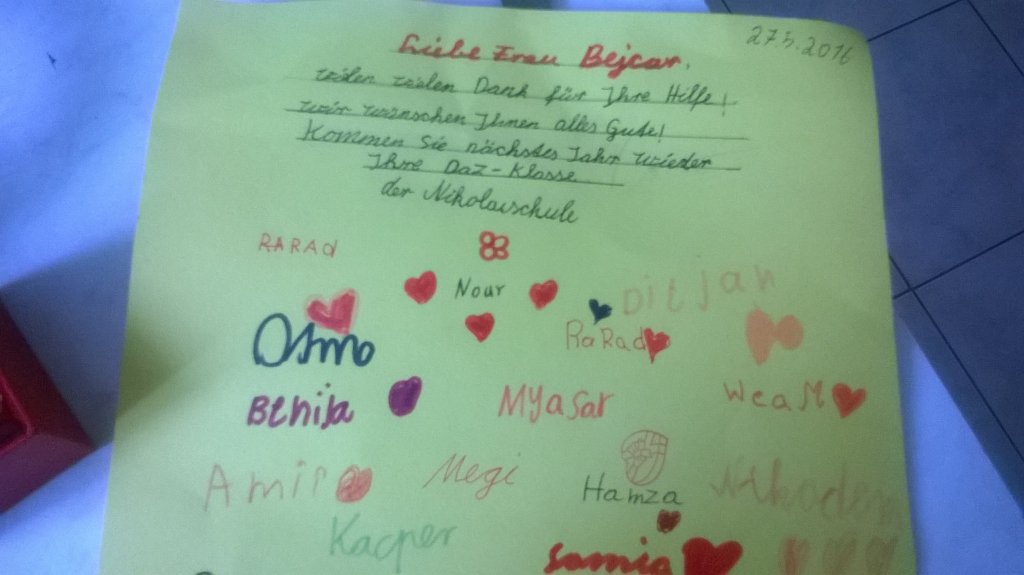 27.5.2016
Liebe Frau Bejcar,
vielen vielen Dank für Ihre Hilfe!
wir wünschen Ihnen alles Gute!
Kommen Sie nächstes Jahr wieder
Ihre DaZ-Klasse
der Nikolaischule
RARAd
Nour
Ditjan
Osmo
RaRad
Behija
Myasar
Weam
Amir
Megi
Hamza
Nikodem
Kacper
Samia